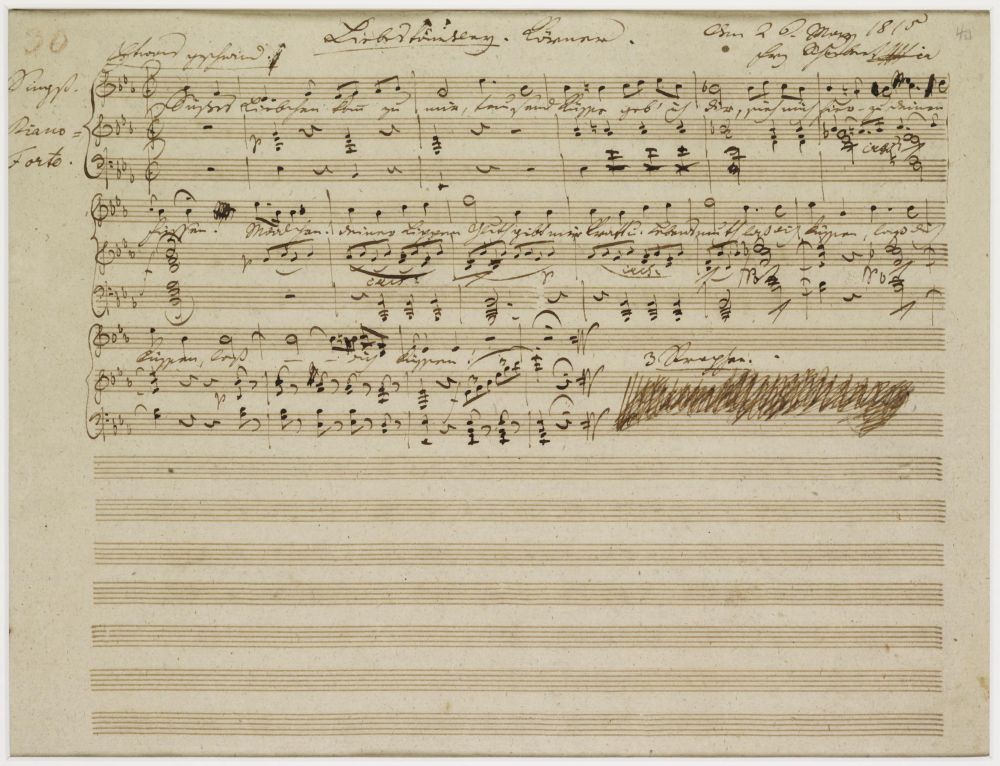 30
Liebeständeley. Körner.
Den 26. May 1815
Etwas geschwind.
Frz Schubert
Singst.
Süßes Liebchen komm zu mir, tausend Küsse geb' ich dir, sieh mich hier zu deinen
Piano=
Forte.
cresc:
Füssen. Mädchen, deiner Lippen Glut gibt mir Kraft u. Lebensmuth laß dich küssen, laß dich
cresc:
cresc:
küssen, laß dich küssen!
3 Strophen.